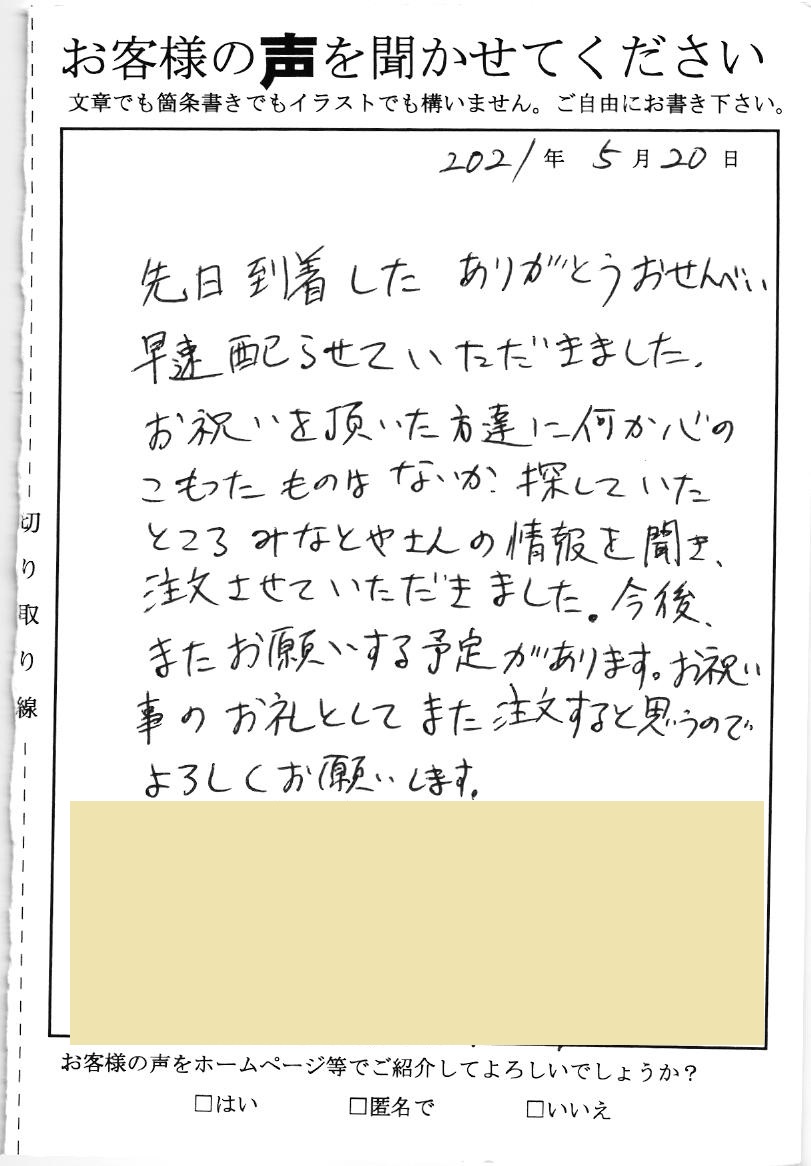 お客様の声を聞かせてください
文章でも箇条書きでもイラストでも構いません。ご自由にお書き下さい。
2021年 5月20日
先日到着した ありがとうおせんべい
早速配らせていただきました。
お祝いを頂いた方達に何か心の
こもったものはないか?探していた
ところみなとやさんの情報を聞き、
注文させていただきました。今後、
またお願いする予定があります。お祝い
事のお礼としてまた注文すると思うので
よろしくお願いします。
切り取り線
お客様の声をホームページ等でご紹介してよろしいでしょうか?
□はい □匿名で □いいえ